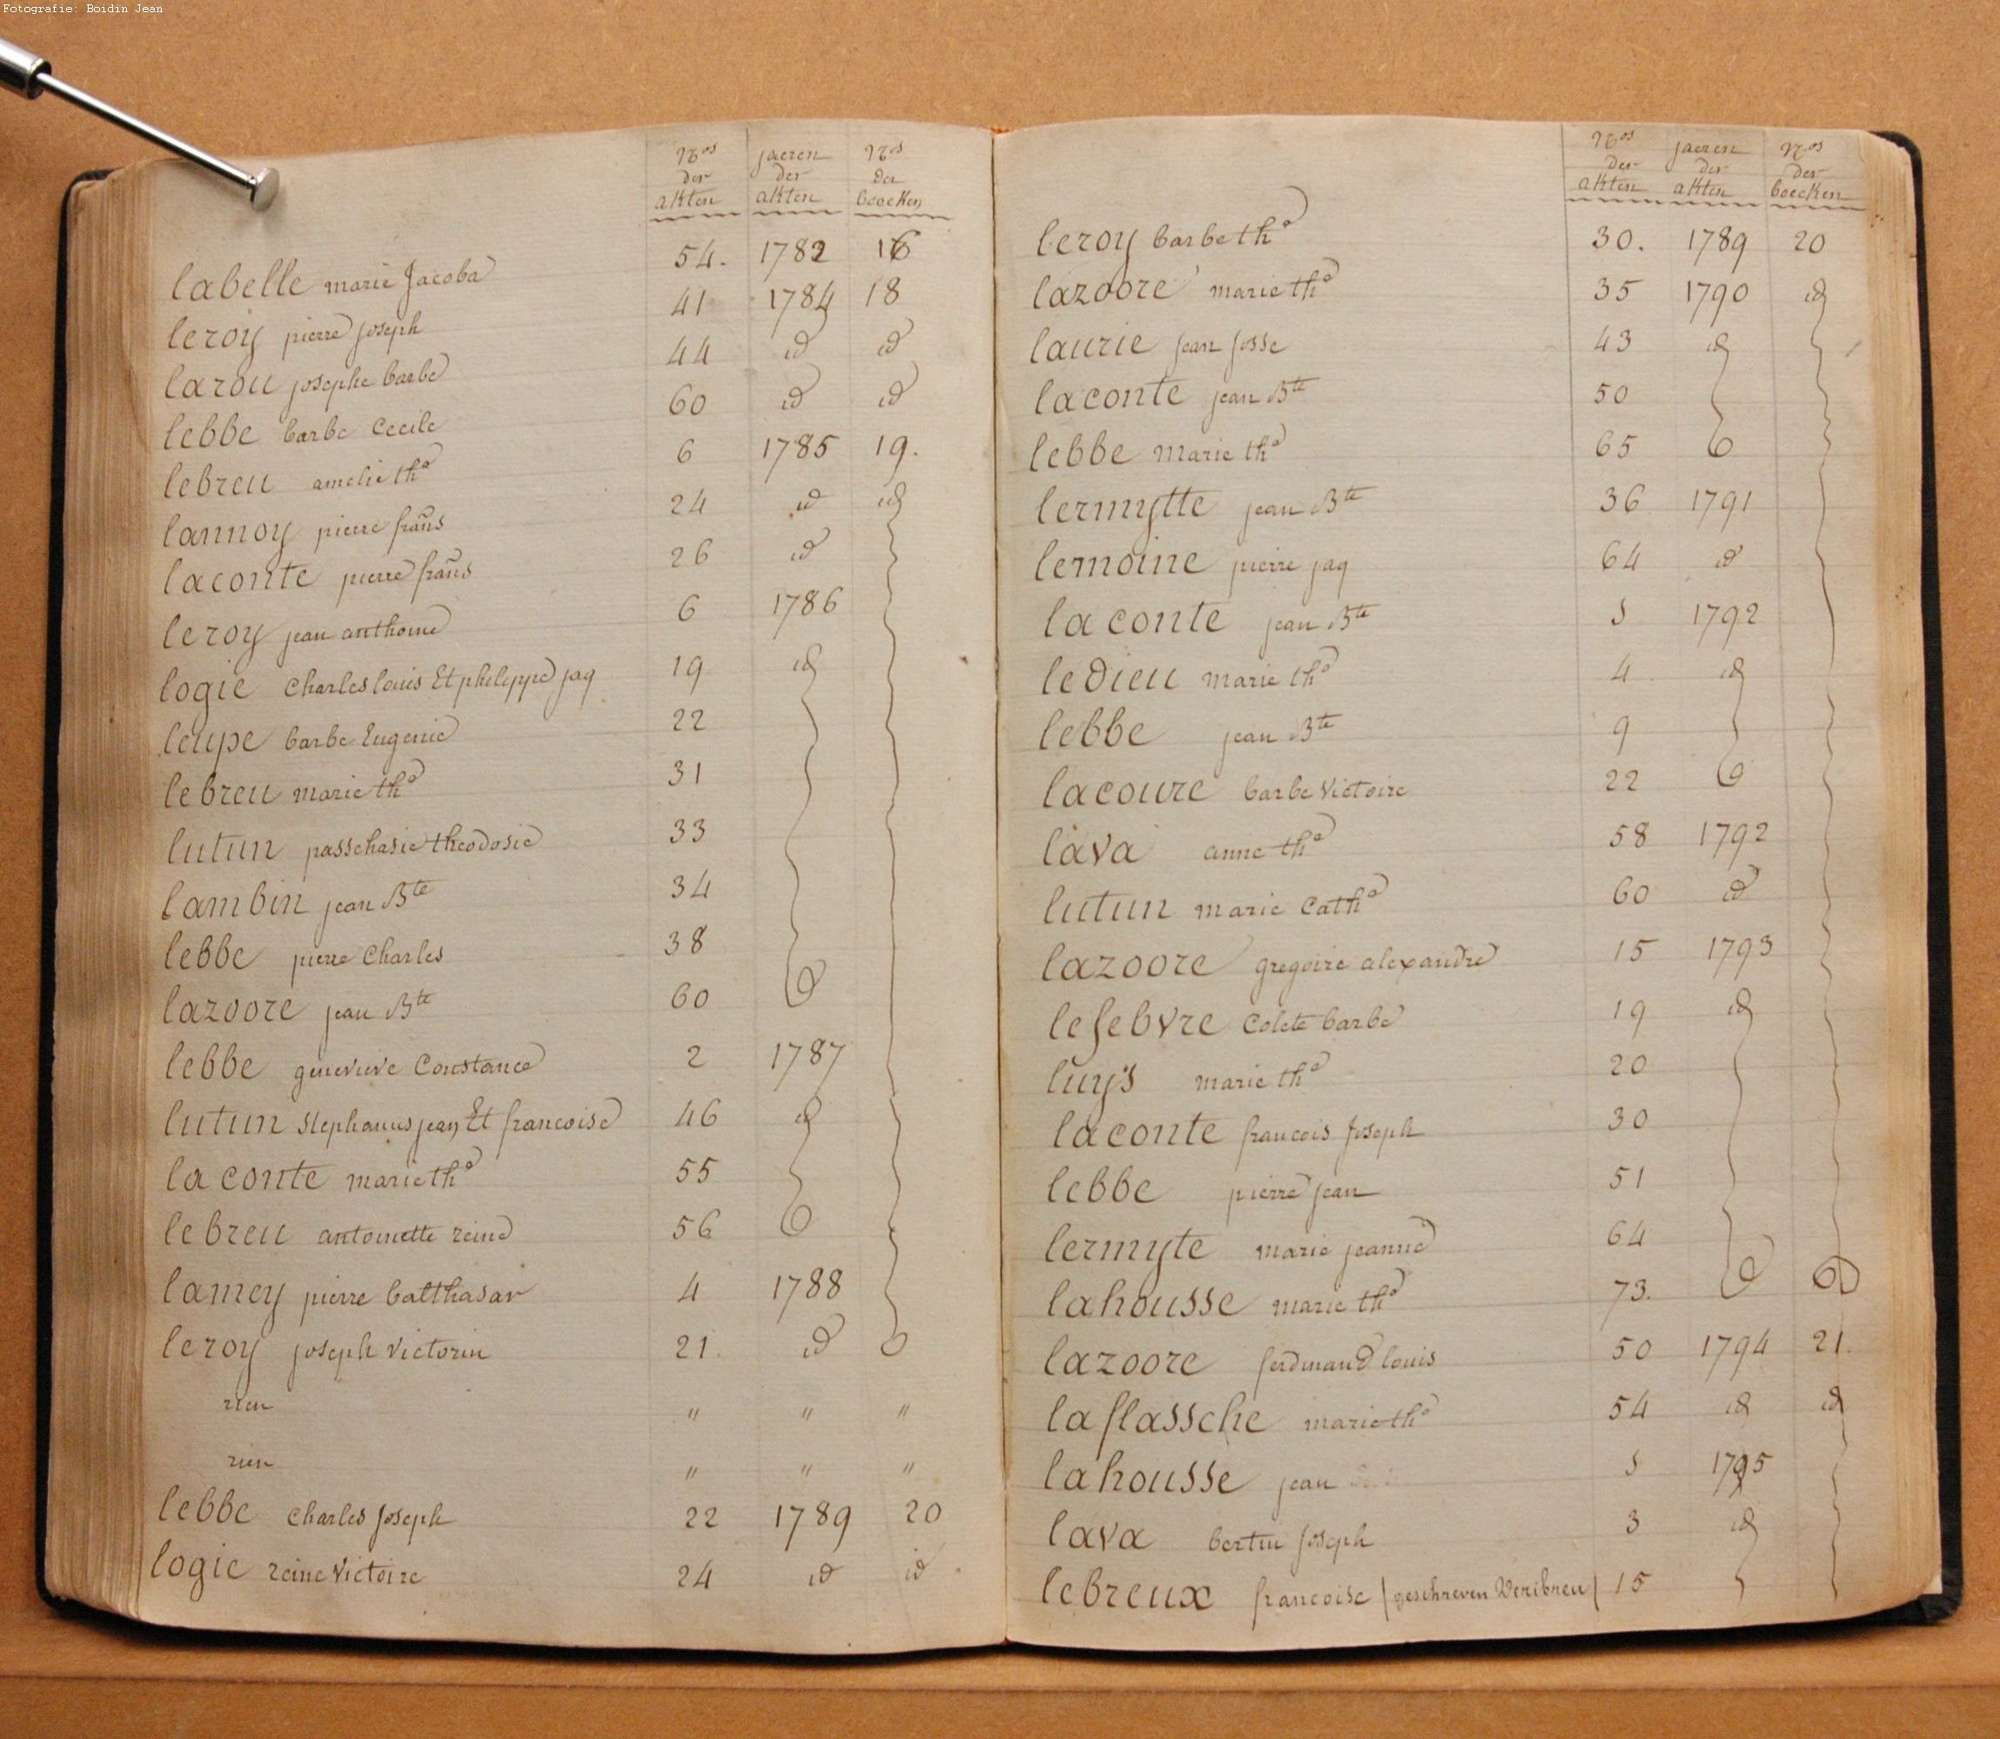 Fotografie: Boidin Jean
Nos der akten jaeren der akten Nos der boecken
labelle marie Jacoba 54. 1782 16
leroij pierre joseph 41 1784 18
larou josephe barbe 44 id id
lebbe barbe Cecile 60 id id
lebreu amelie the 6 1785 19.
lannoy pierre frans 24 id id
laconte pierre frans 26 id
leroy jean anthoine 6 1786
logie Charles louis Et philippe jaq 19 id
leupe barbe Eugenie 22
lebreu marie the 31
lutun passchasie theodosie 33
lambin jean Bte 34
lebbe pierre Charles 38
lazoore jean Bte 60
lebbe genevieve Constance 2 1787
lutun Stephanus jean Et francoise 46 id
la conte marie the 55
lebreu antoinette reine 56
lamey pierre balthasar 4 1788
leroy joseph victorin 21. id
rien " " "
rien " " "
lebbe Charles Joseph 22 1789 20
logie reine Victoire 24 id id
Nos der akten jaeren der akten Nos der boecken
leroy barbe the 30. 1789 20
lazoore marie the 35 1790 id
laurie jean josse 43 id
laconte jean Bte 50
lebbe marie the 65
lermytte jean Bte 36 1791
lemoine pierre jaq 64 id
laconte jean Bte 1 1792
ledieu marie the 4 id
lebbe jean Bte 9
lacoure barbe Victoire 22
lava anne the 58 1792
lutun marie Cathe 60 id
lazoore gregoire alexandre 15 1793
lefebvre Colete barbe 19 id
luys marie the 20
laconte francois Joseph 30
lebbe pierre jean 51
lermyte marie jeanne 64
lahousse marie the 73.
lazoore ferdinand louis 50 1794 21.
laflassche marie the 54 id id
lahousse jean 1 1795
lava bertin Joseph 3 id
lebreux francoise (geschreven Deribreu) 15